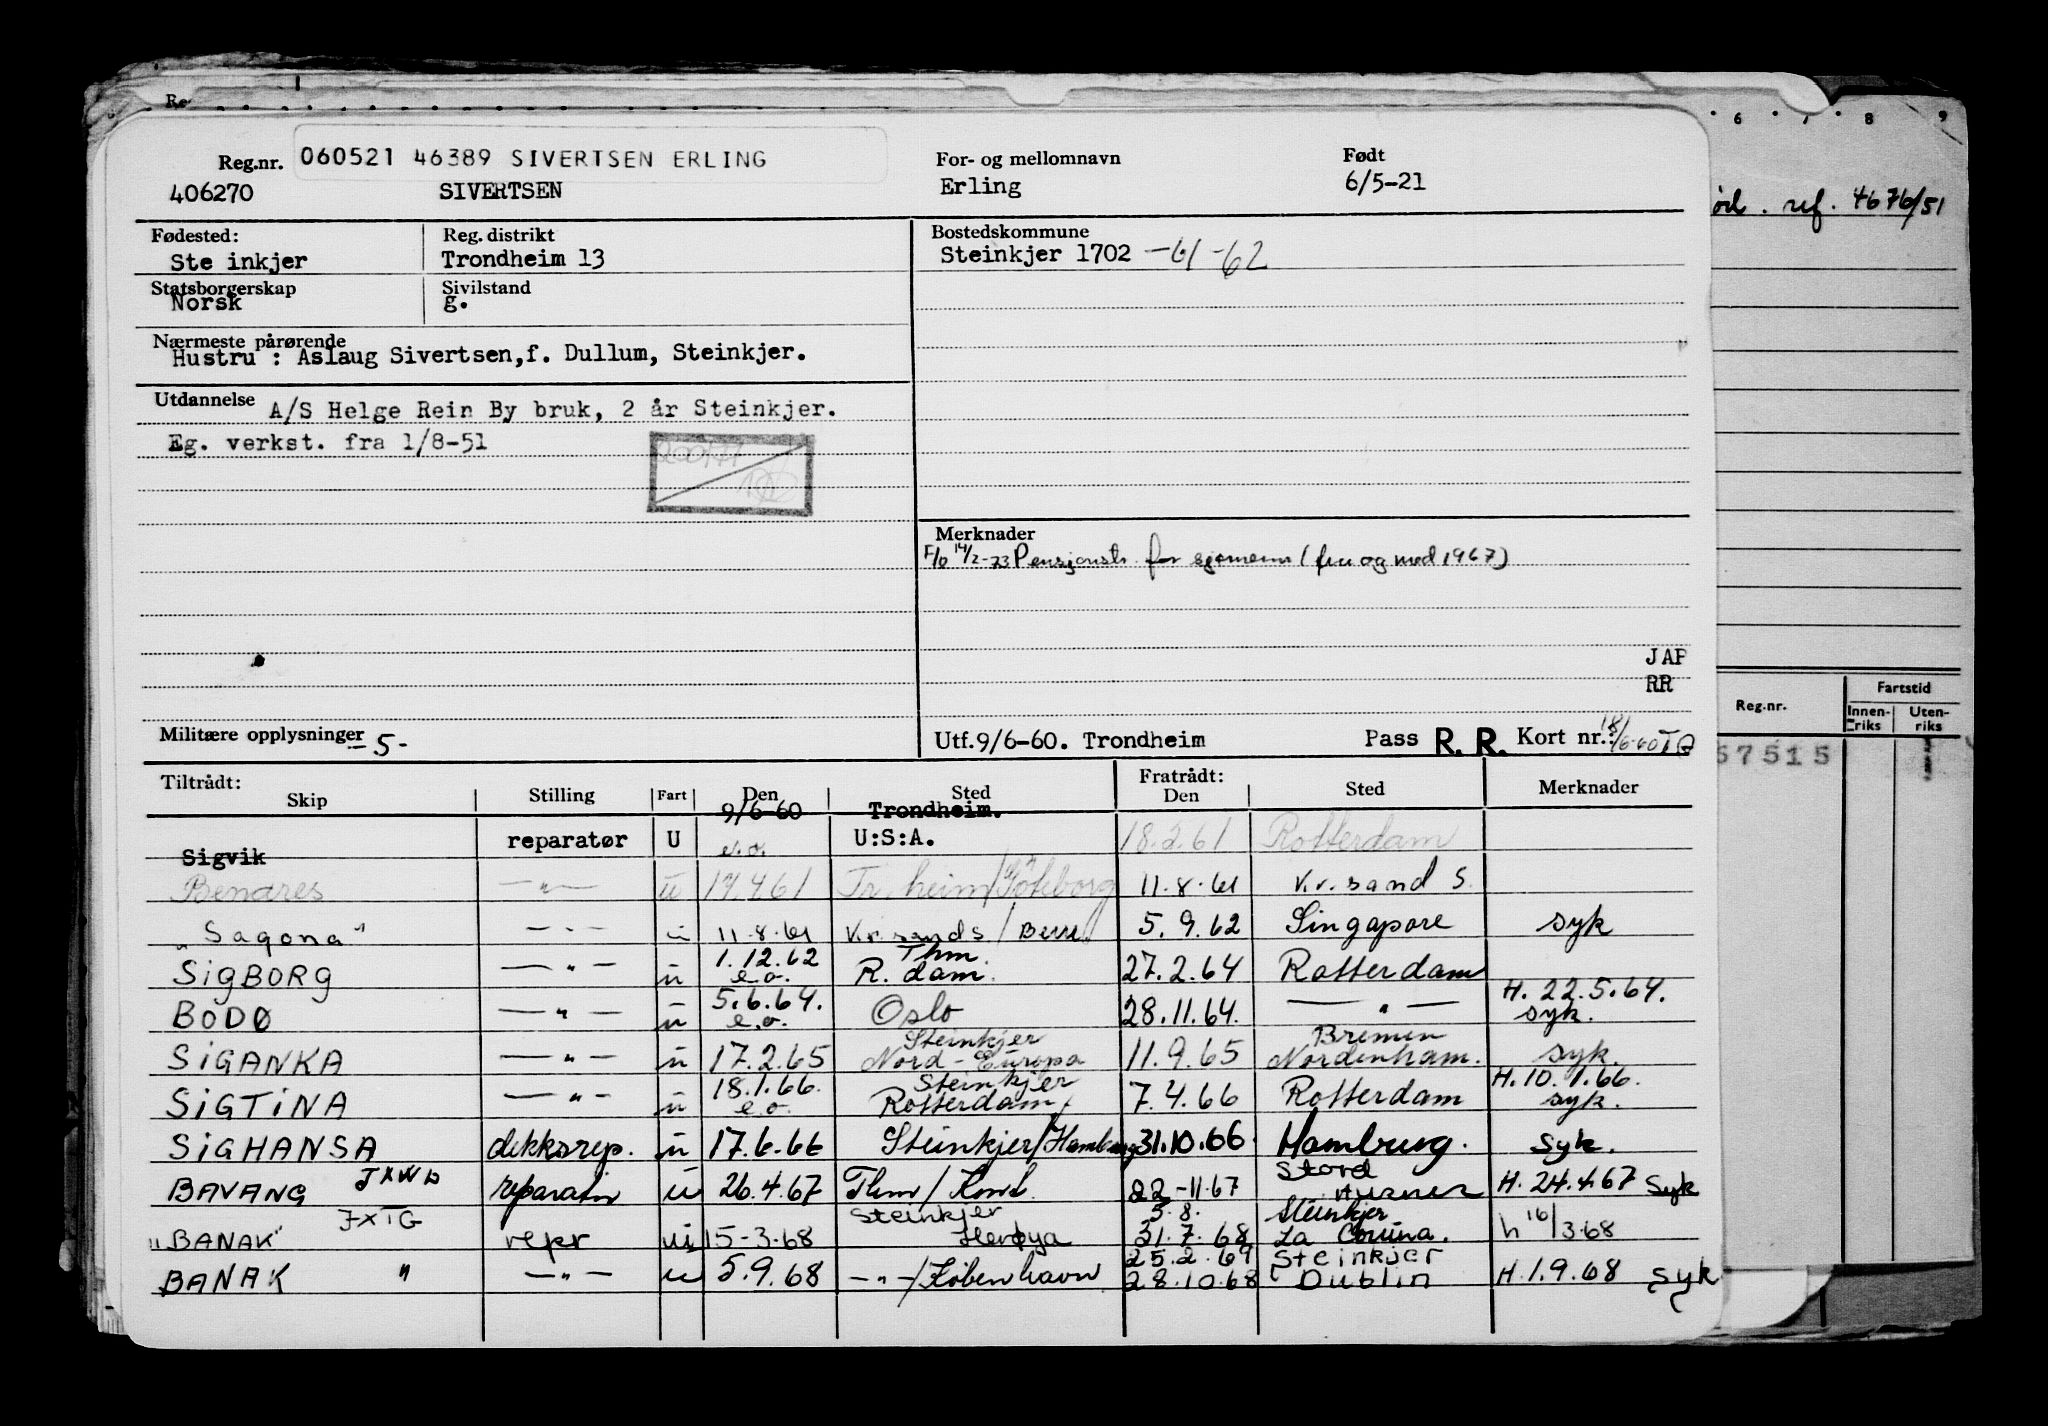 Reg.nr. 060521 46389 SIVERTSEN ERLING For- og mellomnavn Født
406270 SIVERTSEN Erling 6/5-21
Fødested: Reg. distrikt Bostedskommune
Ste inkjer Trondheim 13 Steinkjer 1702 -61-62
Statsborgerskap Sivilstand
Norsk g.
Nærmeste pårørende
Hustru : Aslaug Sivertsen,f. Dullum, Steinkjer.
Utdannelse A/S Helge Rein By bruk, 2 år Steinkjer.
Eg. verkst. fra 1/8-51
Merknader
F/o 14/2-73 Pensjonstr. for sjømenn (fra og med 1967)
JAP
RR
Militære opplysninger -5- Utf.9/6-60. Trondheim Pass R. R. Kort nr.:
Tiltrådt: Fratrådt:
Skip Stilling Fart Den Sted Den Sted Merknader
9/6-60 Trondheim.
Sigvik reparatør U e.o. U:S:A. 18.2.61 Rotterdam
Benares -"- u 17.4.61 Tr.heim/Göteborg 11.8.61 Kr.sand S.
"Sagona" -"- u 11.8.61 Kr.sand S./ 5.9.62 Singapore syk
1.12.62 Thm.
SIGBORG -"- u e.o. R.dam. 27.2.64 Rotterdam
5.6.64. H. 22.5.64.
BODØ -"- u e.o. Oslo 28.11.64. -"- syk.
Steinkjer Bremen
SIGANKA -"- u 17.2.65 Nord-Europa 11.9.65 Nordenham. syk.
18.1.66. Steinkjer H. 10.1.66.
SIGTINA -"- u e.o. Rotterdam/ 7.4.66 Rotterdam syk.
SIGHANSA dekksrep. u 17.6.66 Steinkjer/Hamburg 31.10.66 Hamburg. syk.
Stord
BAVANG JXWD reparatør u 26.4.67 Thm/ 22-11.67 H. 24.4.67 syk
Steinkjer 5.8. Steinkjer
"BANAK" JXTG repr u 15-3.68 Herøya 31.7.68 La Coruna. h 16/3.68
25.2.69 Steinkjer
BANAK " -"- u 5.9.68 -"-/København 28.10.68 Dublin H.1.9.68 syk
6 7 8 9
ref. 4676/51
Reg.nr. Fartstid
Innen-riks Uten-riks
57515